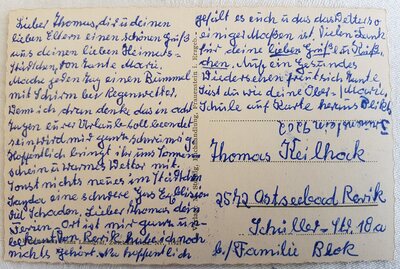 Lieber Thomas, dir u deinen
lieben Eltern einen schönen Gruß
aus deinen lieben Heimats-
Städtchen von Tante Marie.
Mache jeden Tag einen Bummel
mit Schirm bei Regenwetter.
Wenn ich dran denke das in
Tagen eurer Urlaub soll beendet
sein wird mir ganz
Hoffentlich bringt ihr uns Sonnen-
schein u warmes Wetter mit.
Sonst nichts neues im Städtchen
Sayda eine schwere Gas Explosion
viel Schaden. Lieber Thomas dein
Ort ist mir ganz
Rerik habe ich noch
nichts gehört. Na hoffentlich
gefält es euch u das Wetter so
einigermaßen ist. Vielen Dank
für deine lieben Grüße u
Auf ein Gesundes
Wiedersehen freut sich Tante
Marie
Hast du wie deine Ober-
Schule auf Karte heraus
Thomas Keilhack
2572 Ostseebad Rerik
Schiller-Str. 18a
b./Familie Blok